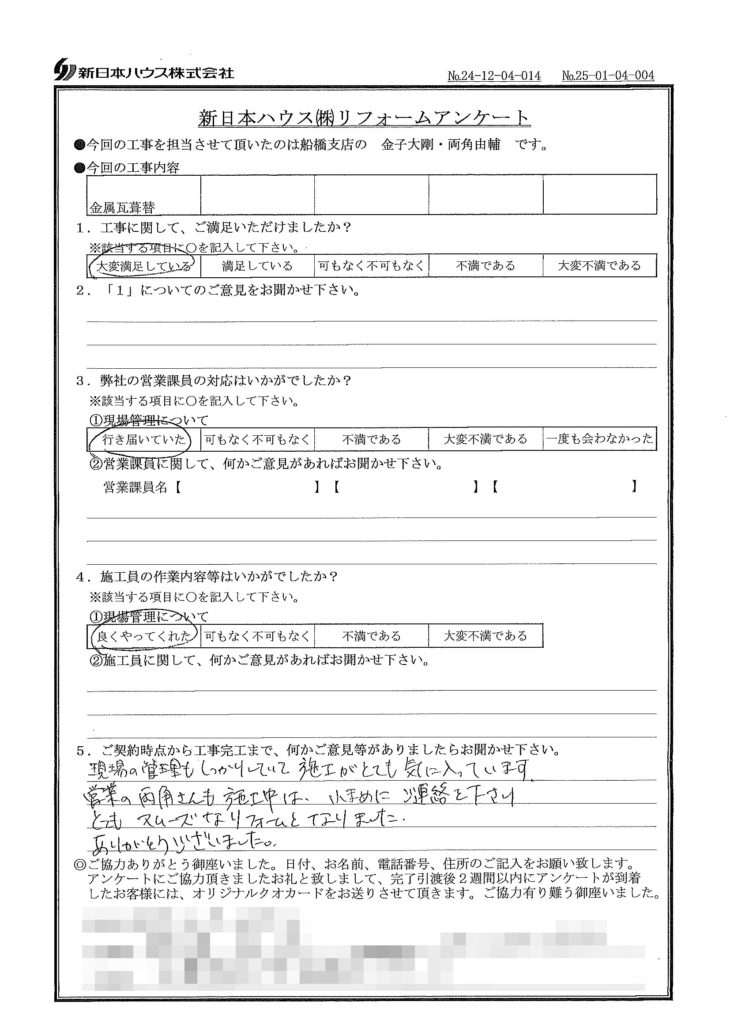 新日本ハウス株式会社
№24-12-04-014 №25-01-04-004
新日本ハウス㈱リフォームアンケート
●今回の工事を担当させて頂いたのは船橋支店の 金子大剛・両角由輔 です。
●今回の工事内容
金属瓦葺替
1．工事に関して、ご満足いただけましたか？
※該当する項目に○を記入して下さい。
大変満足している 満足している 可もなく不可もなく 不満である 大変不満である
2．「1」についてのご意見をお聞かせ下さい。
3．弊社の営業課員の対応はいかがでしたか？
※該当する項目に○を記入して下さい。
①現場管理について
行き届いていた 可もなく不可もなく 不満である 大変不満である 一度も会わなかった
②営業課員に関して、何かご意見があればお聞かせ下さい。
営業課員名【 】【 】【 】
4．施工員の作業内容等はいかがでしたか？
※該当する項目に○を記入して下さい。
①現場管理について
良くやってくれた 可もなく不可もなく 不満である 大変不満である
②施工員に関して、何かご意見があればお聞かせ下さい。
5．ご契約時点から工事完工まで、何かご意見等がありましたらお聞かせ下さい。
現場の管理もしっかりしていて 施工がとても気に入っています
営業の両角さんも施工中は、小まめにご連絡を下さり
とても スムーズなリフォームとなりました.
ありがとうございました。
◎ご協力ありがとう御座いました。日付、お名前、電話番号、住所のご記入をお願い致します。
アンケートにご協力頂きましたお礼と致しまして、完了引渡後2週間以内にアンケートが到着
したお客様には、オリジナルクオカードをお送りさせて頂きます。ご協力有り難う御座いました。